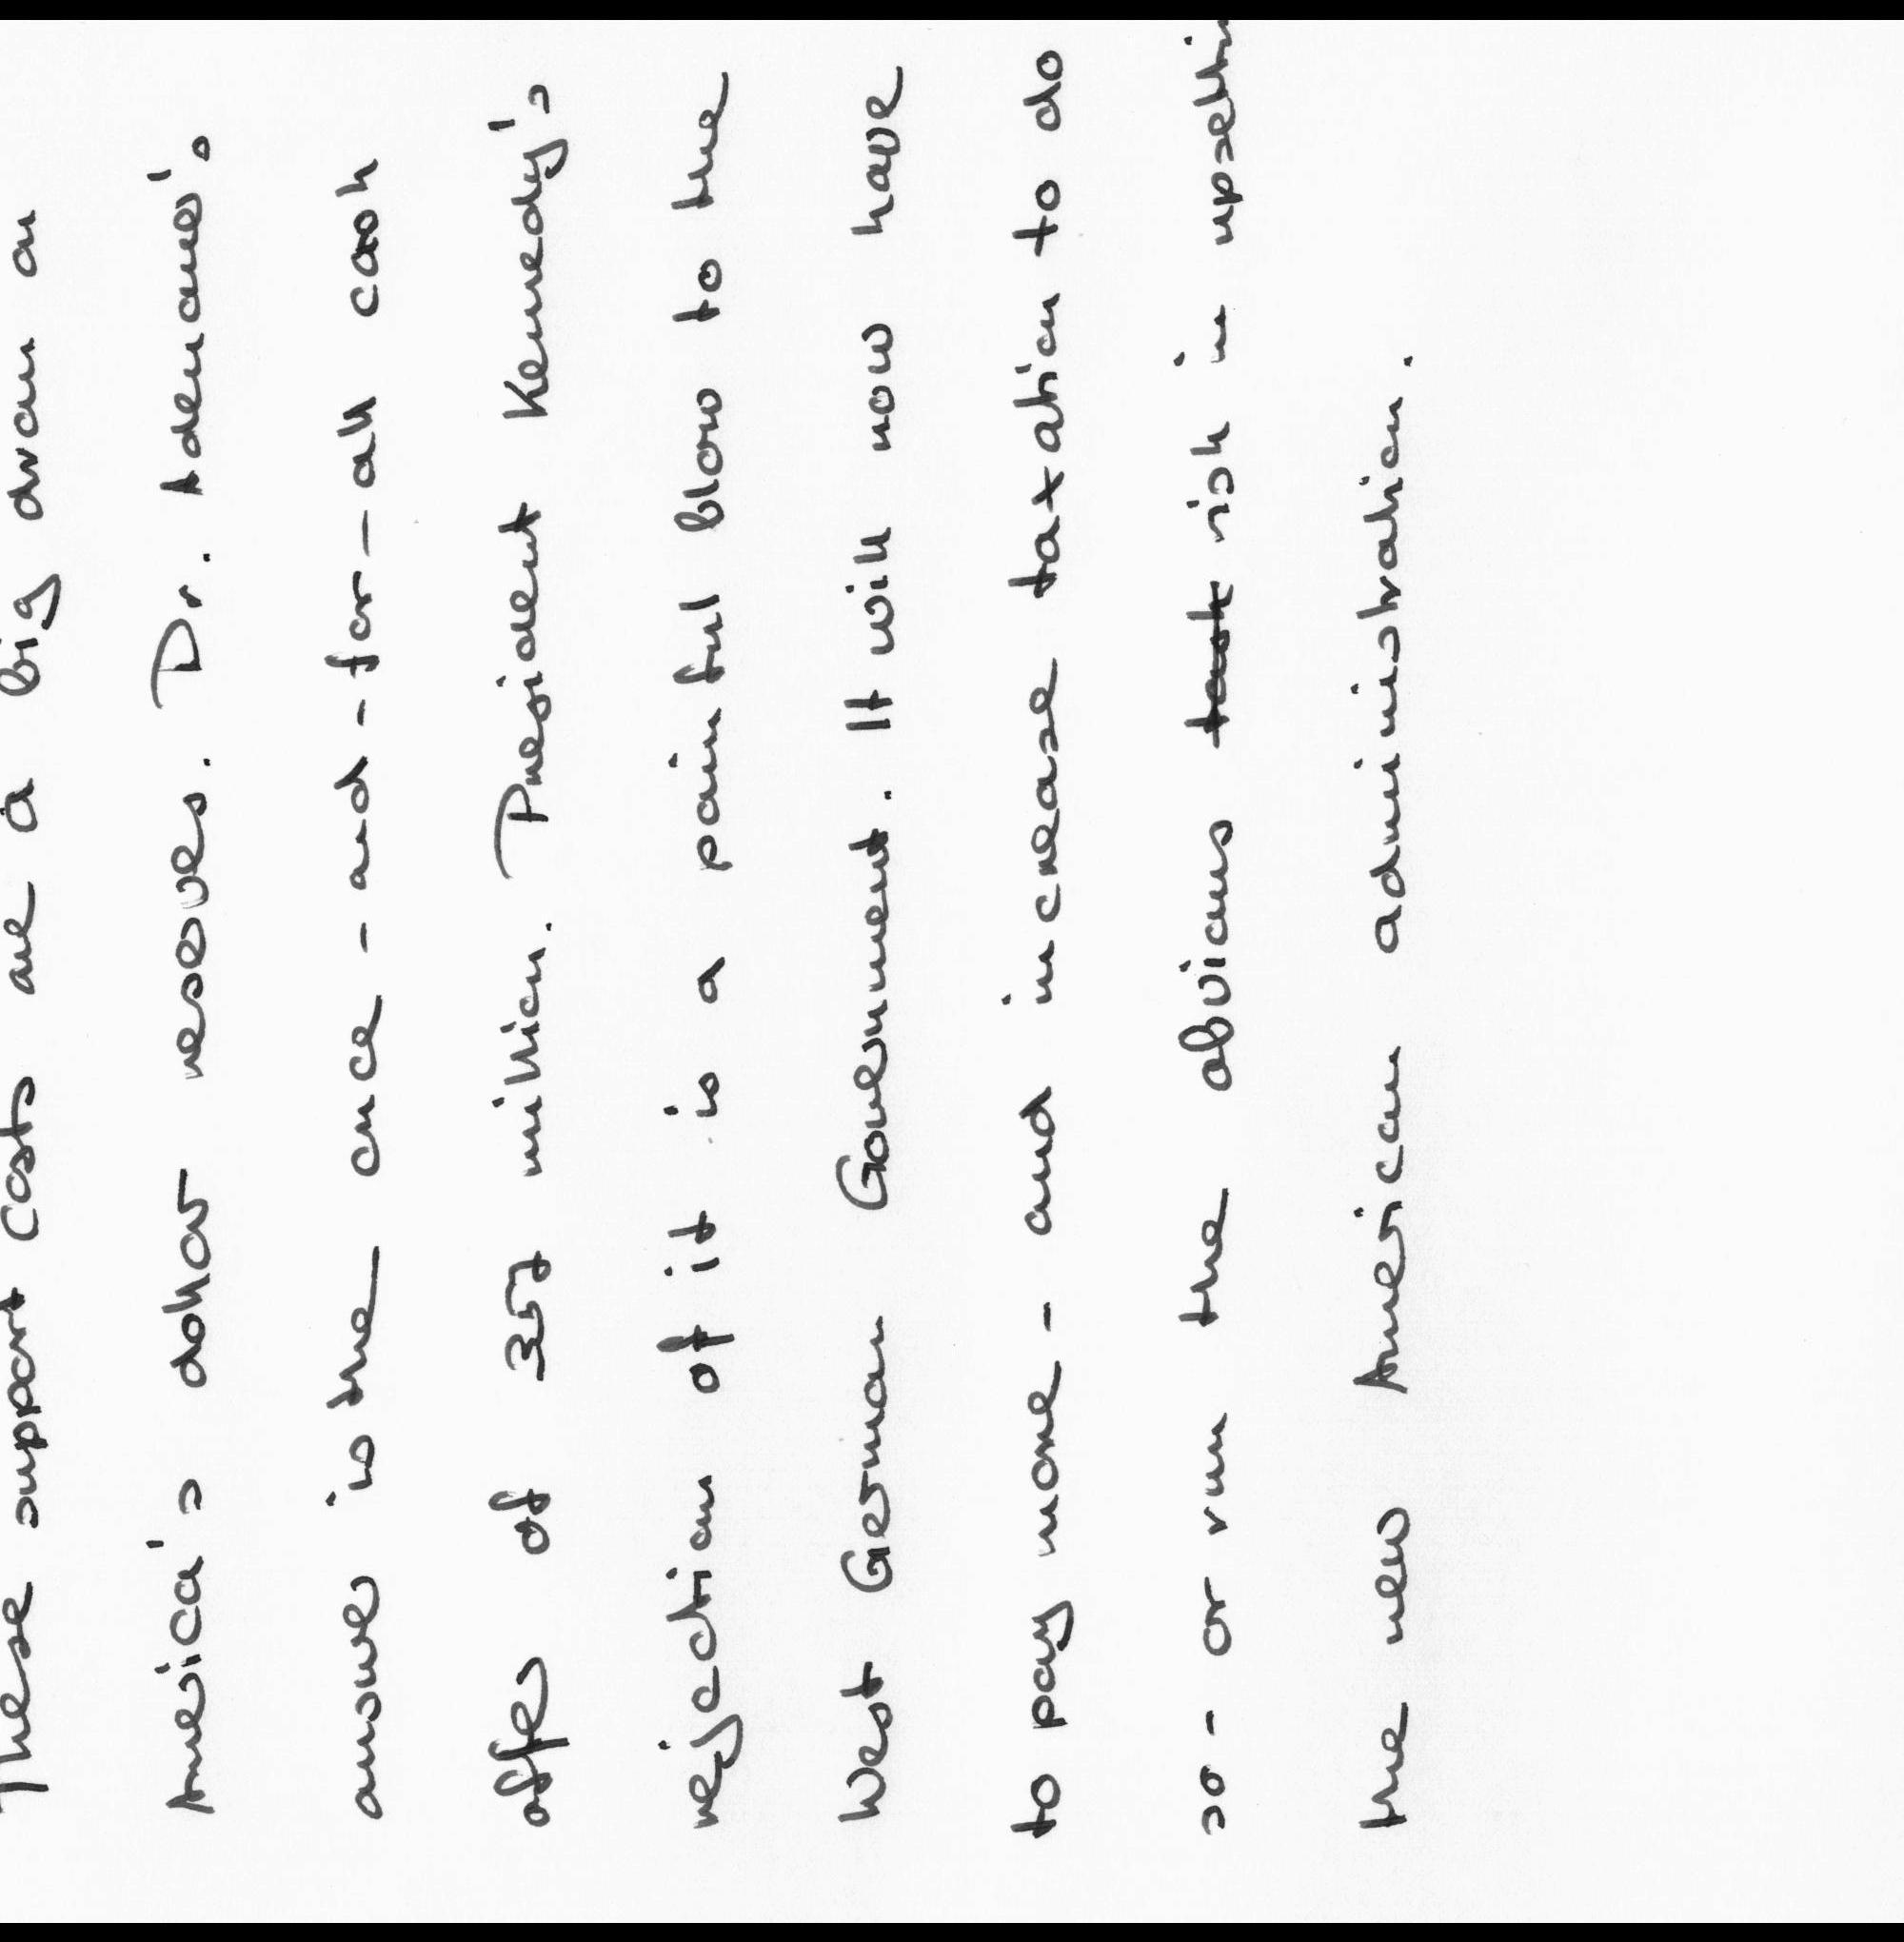 These support costs are a big dran on
America's dollar reserves. Dr. Adenauer's
answer is the once-and-for-all cash
offer of 357 million. President Kennedy's
rejection of it is a painful blow to the
West German Government. It will now have
to pay more - and increase taxation to do
so - or run the obvious risk in upsettin
the new American administration.